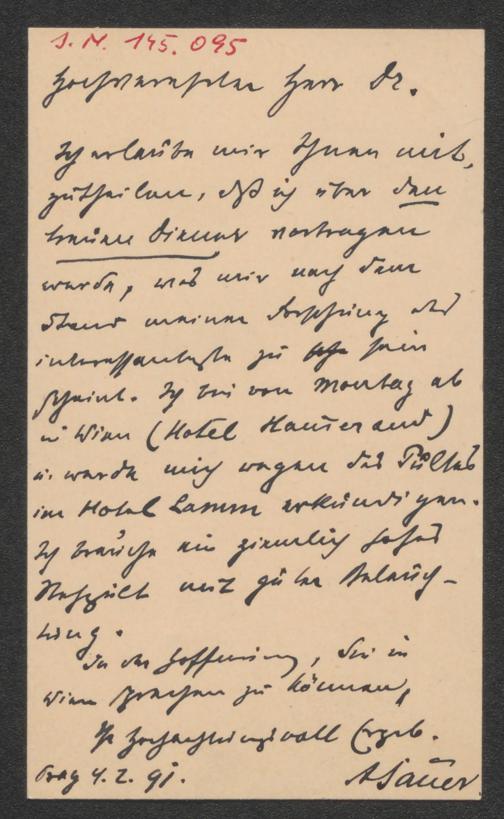 I. N. 145.095
Hochverehrter Herr Dr.
Ich erlaube mir Ihnen mit,
zutheilen, daß ich über den
treuen Diener vortragen
werde, was mir nach dem
Stand meiner Forschung das
interessanteste zu sein
scheint. Ich bin von Montag ab
in Wien (Hotel Hammerand)
u. werde mich wegen des Pultes
im Hotel Lamm erkundigen.
Ich brauche ein ziemlich hohes
Stehpult mit guter Beleuch-
tung.
In der Hoffnung, Sie in
Wien sprechen zu können,
Ihr hochachtungsvoll Ergeb.
Prag 4. 2. 91.
ASauer